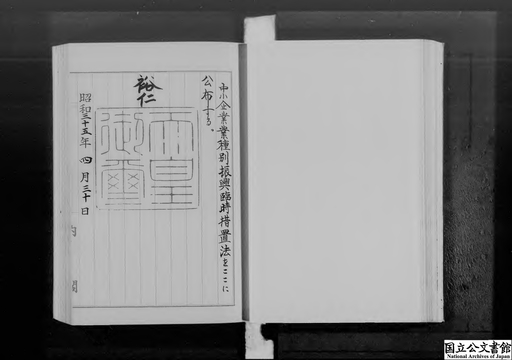 中小企業業種別振興臨時措置法をここに
公布する。
裕仁
天皇
御璽
昭和三十五年四月三十日
内閣
国立公文書館
National Archives of Japan